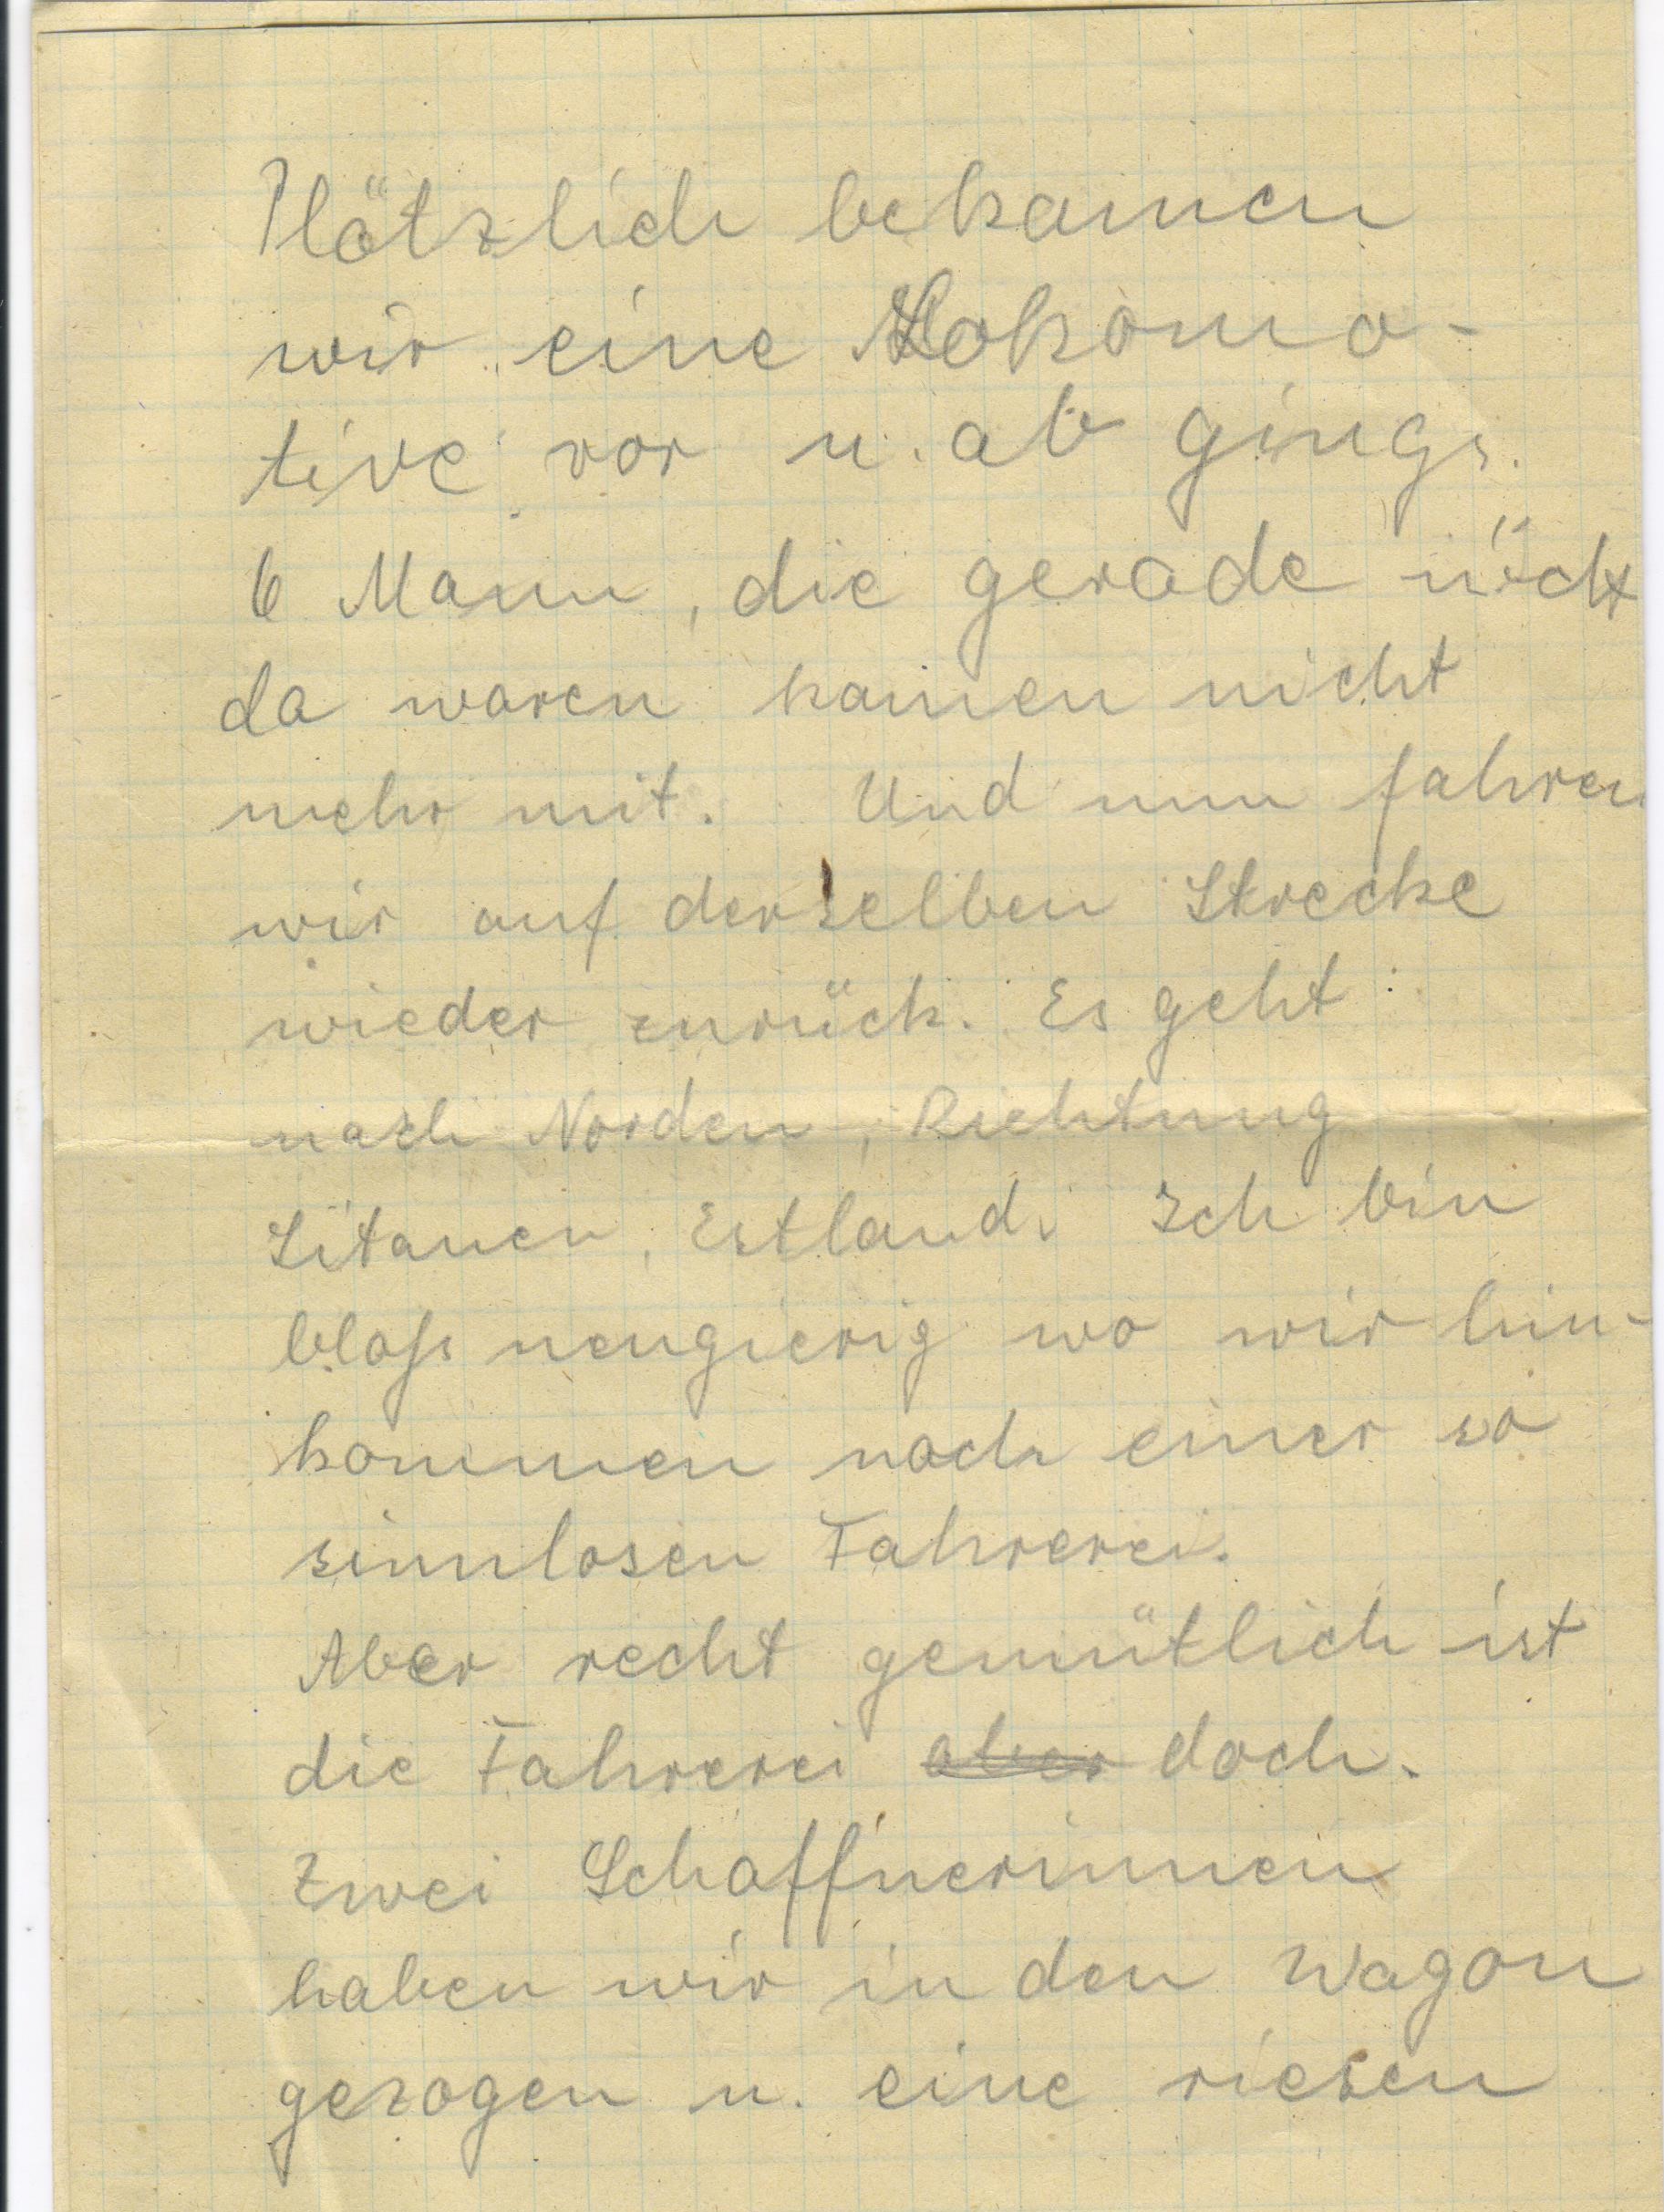 Plötzlich bekamen
wir eine Lokomo-
tive vor u. ab gings.
6 Mann, die gerade nicht
da waren kamen nicht
mehr mit. Und nun fahren
wir auf derselben Strecke
wieder zurück. Es geht
nach Norden, Richtung
Litauen, Estland. Ich bin
bloß neugierig wo wir hin-
kommen nach einer so
sinnlosen Fahrerei.
Aber recht gemütlich ist
die Fahrerei aber doch.
Zwei Schaffnerinnen
haben wir in den Wagon
gezogen u. eine riesen